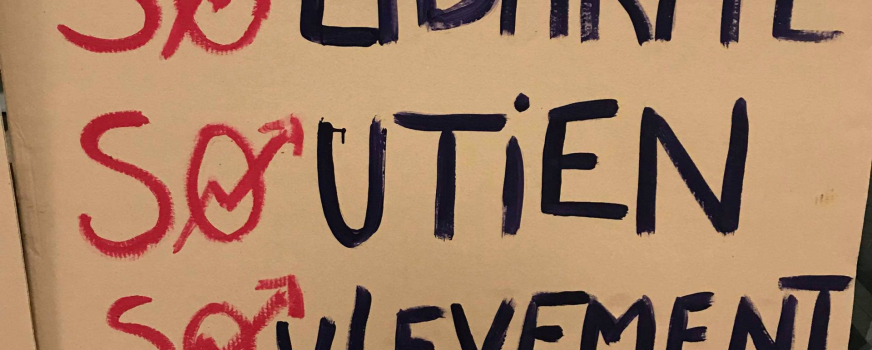 SOLIDARITE
SOUTiEN
SOULEVEMENT